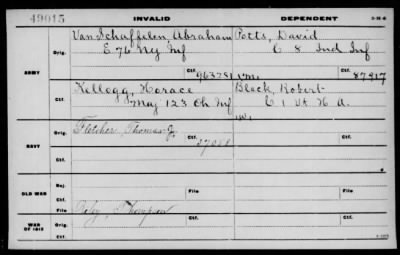 49015 INVALID DEPENDENT 3-35-6
Van Schaffelen, Abraham Potts, David
Orig. E 76 Ny Inf C 8 Ind Inf
ARMY Ctf. 963781 Ctf. 87917
Kellogg, Horace Black, Robert
Ctf. Maj 123 Oh Inf C 1 Vt H A.
Fletcher, Thomas J.
Orig. Ctf. Orig. Ctf.
NAVY
Ctf. Ctf.
Rej. File
OLD WAR
Ctf. File Ctf.
WAR OF 1812 File Thompson Orig.
Orig. Ctf. Ctf.